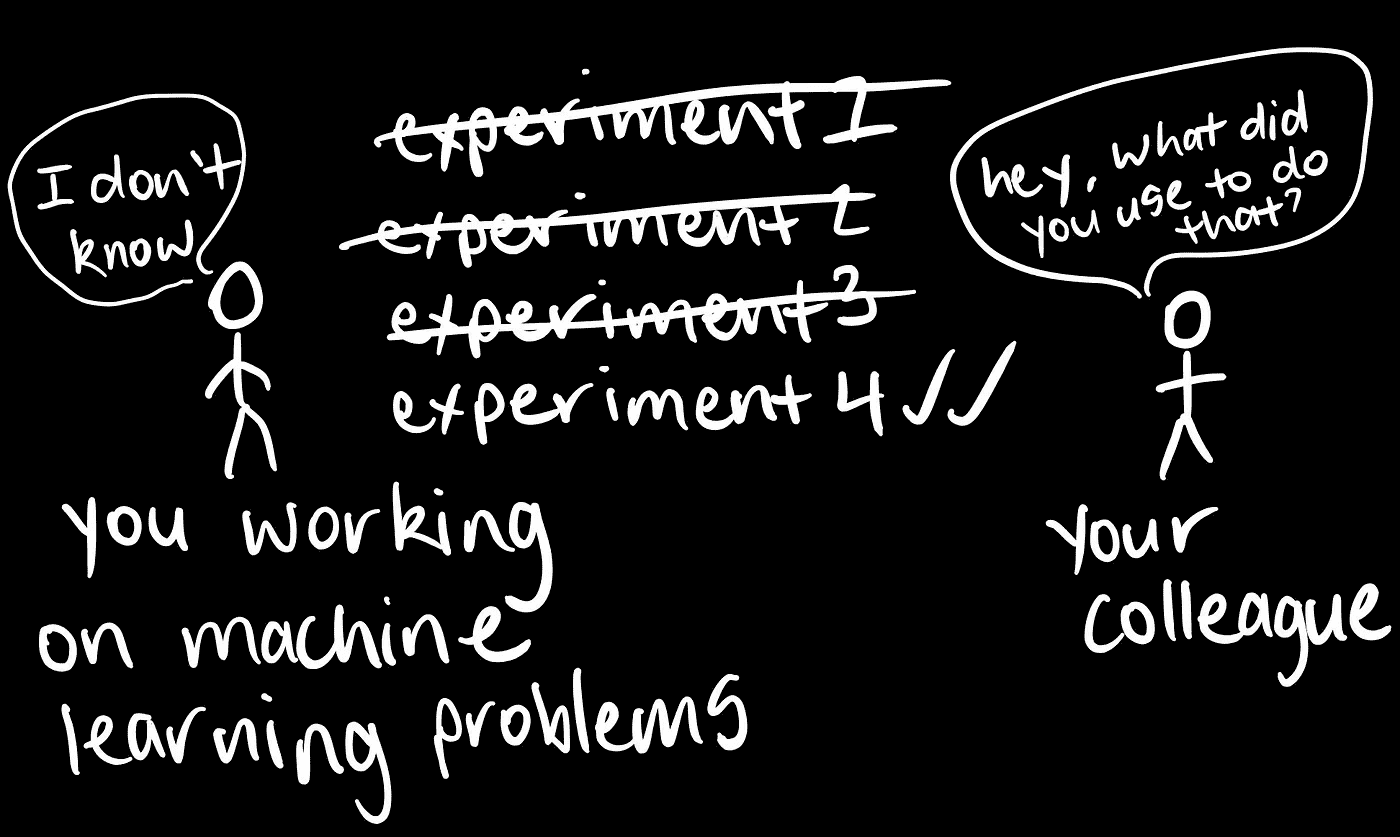 I don't
know
experiment 1
experiment 2
experiment 3
experiment 4 ✓✓
hey, what did
you use to do
that?
you working
on machine
learning problems
your
colleague